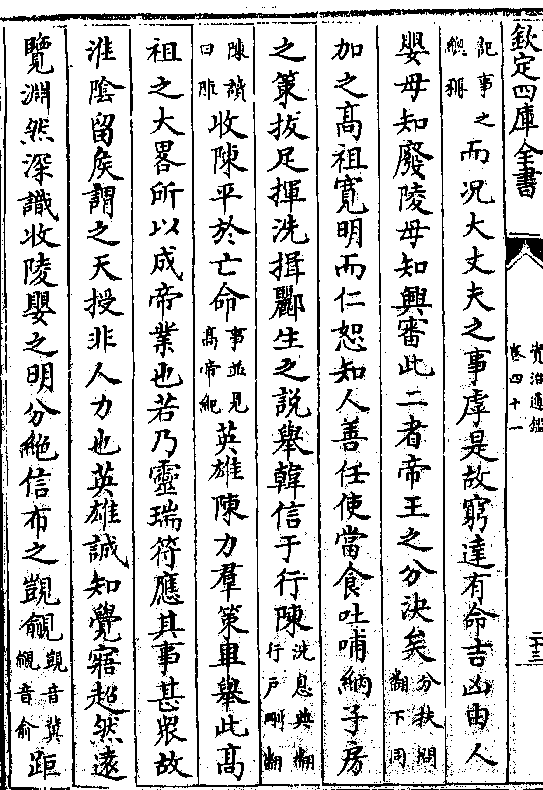 欽定四庫全書
資治通鑑
卷四十一
二十三
記事之緫稱而況大丈夫之事虖是故窮達有命吉凶由人
嬰母知廢陵母知興審此二者帝王之分決矣分扶問翻下同
加之髙祖寛明而仁恕知人善任使當食吐哺納子房
之策拔足揮洗揖酈生之説舉韓信于行陳洗息典翻行戶剛翻
陳讀曰陣收陳平於亡命事並見髙帝紀英雄陳力羣策畢舉此髙
祖之大畧所以成帝業也若乃靈瑞符應其事甚衆故
淮隂留侯謂之天授非人力也英雄誠知覺寤超然逺
覽淵然深識收陵嬰之明分絶信布之覬覦覬音冀覦音俞距